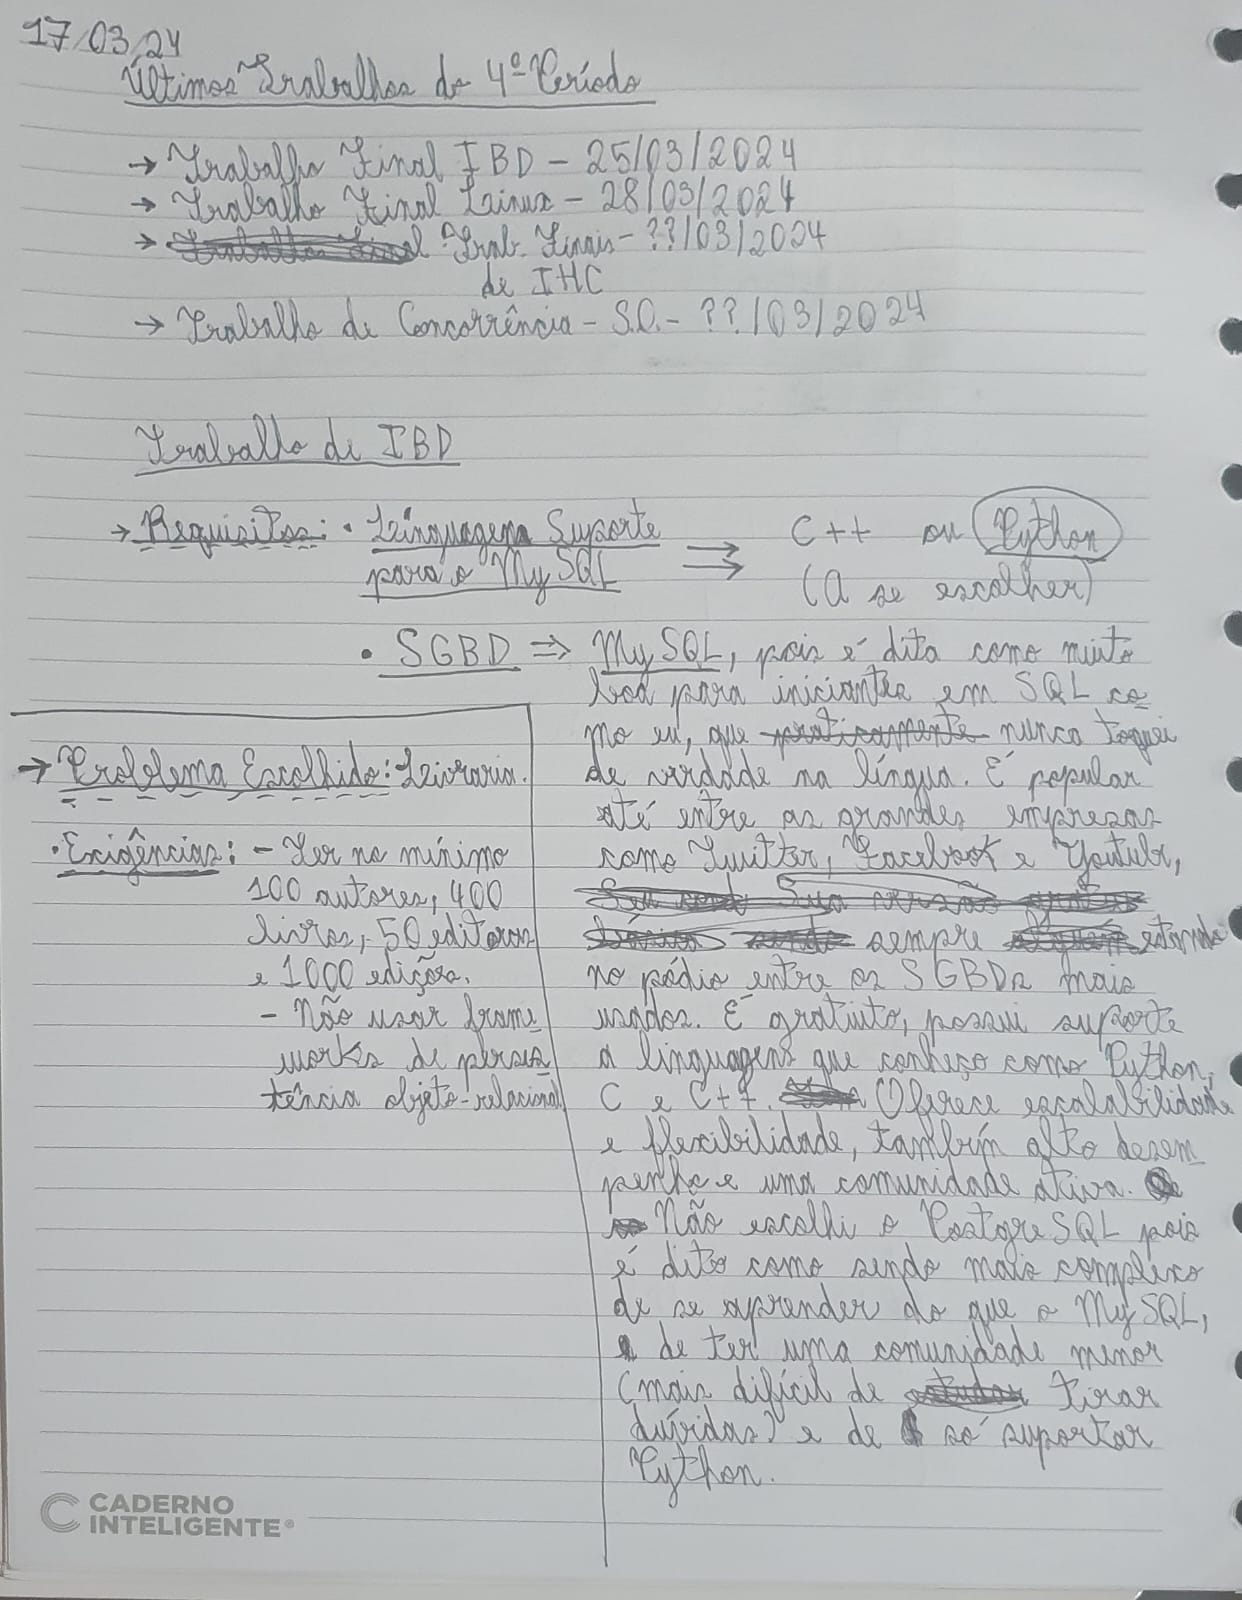 17/03/24
Últimos Trabalhos do 4º Período
→ Trabalho Final IBD - 25/03/2024
→ Trabalho Final Linux - 28/03/2024
→ Trabalho Final Trab. Finais - ??/03/2024
de IHC
→ Trabalho de Concorrência - S.O. - ??/03/2024
Trabalho de IBD
→ Requisitos: • Linguagem Suporte
para o MySQL
⇒ C++ ou Python
(A se escolher)
• SGBD ⇒ MySQL, pois é dita como muito
boa para iniciantes em SQL co
mo eu, que praticamente nunca toquei
de verdade na língua. É popular
até entre as grandes empresas
como Twitter, Facebook e Youtube,
Sua versão
sempre estando
no pódio entre os SGBDs mais
usados. É gratuito, possui suporte
a linguagens que conheço como Python,
C e C++. Oferece escalabilidade
e flexibilidade, também alto desem
penho e uma comunidade ativa.
Não escolhi o PostgreSQL pois
é dito como sendo mais complexo
de se aprender do que o MySQL,
de ter uma comunidade menor
(mais difícil de estudar tirar
dúvidas) e de só suportar
Python.
→ Problema Escolhido: Livraria.
• Exigências: - Ter no mínimo
100 autores, 400
livros, 50 editoras
e 1000 edições.
- Não usar frame
works de persis
tência objeto-relacional
CADERNO
INTELIGENTE®